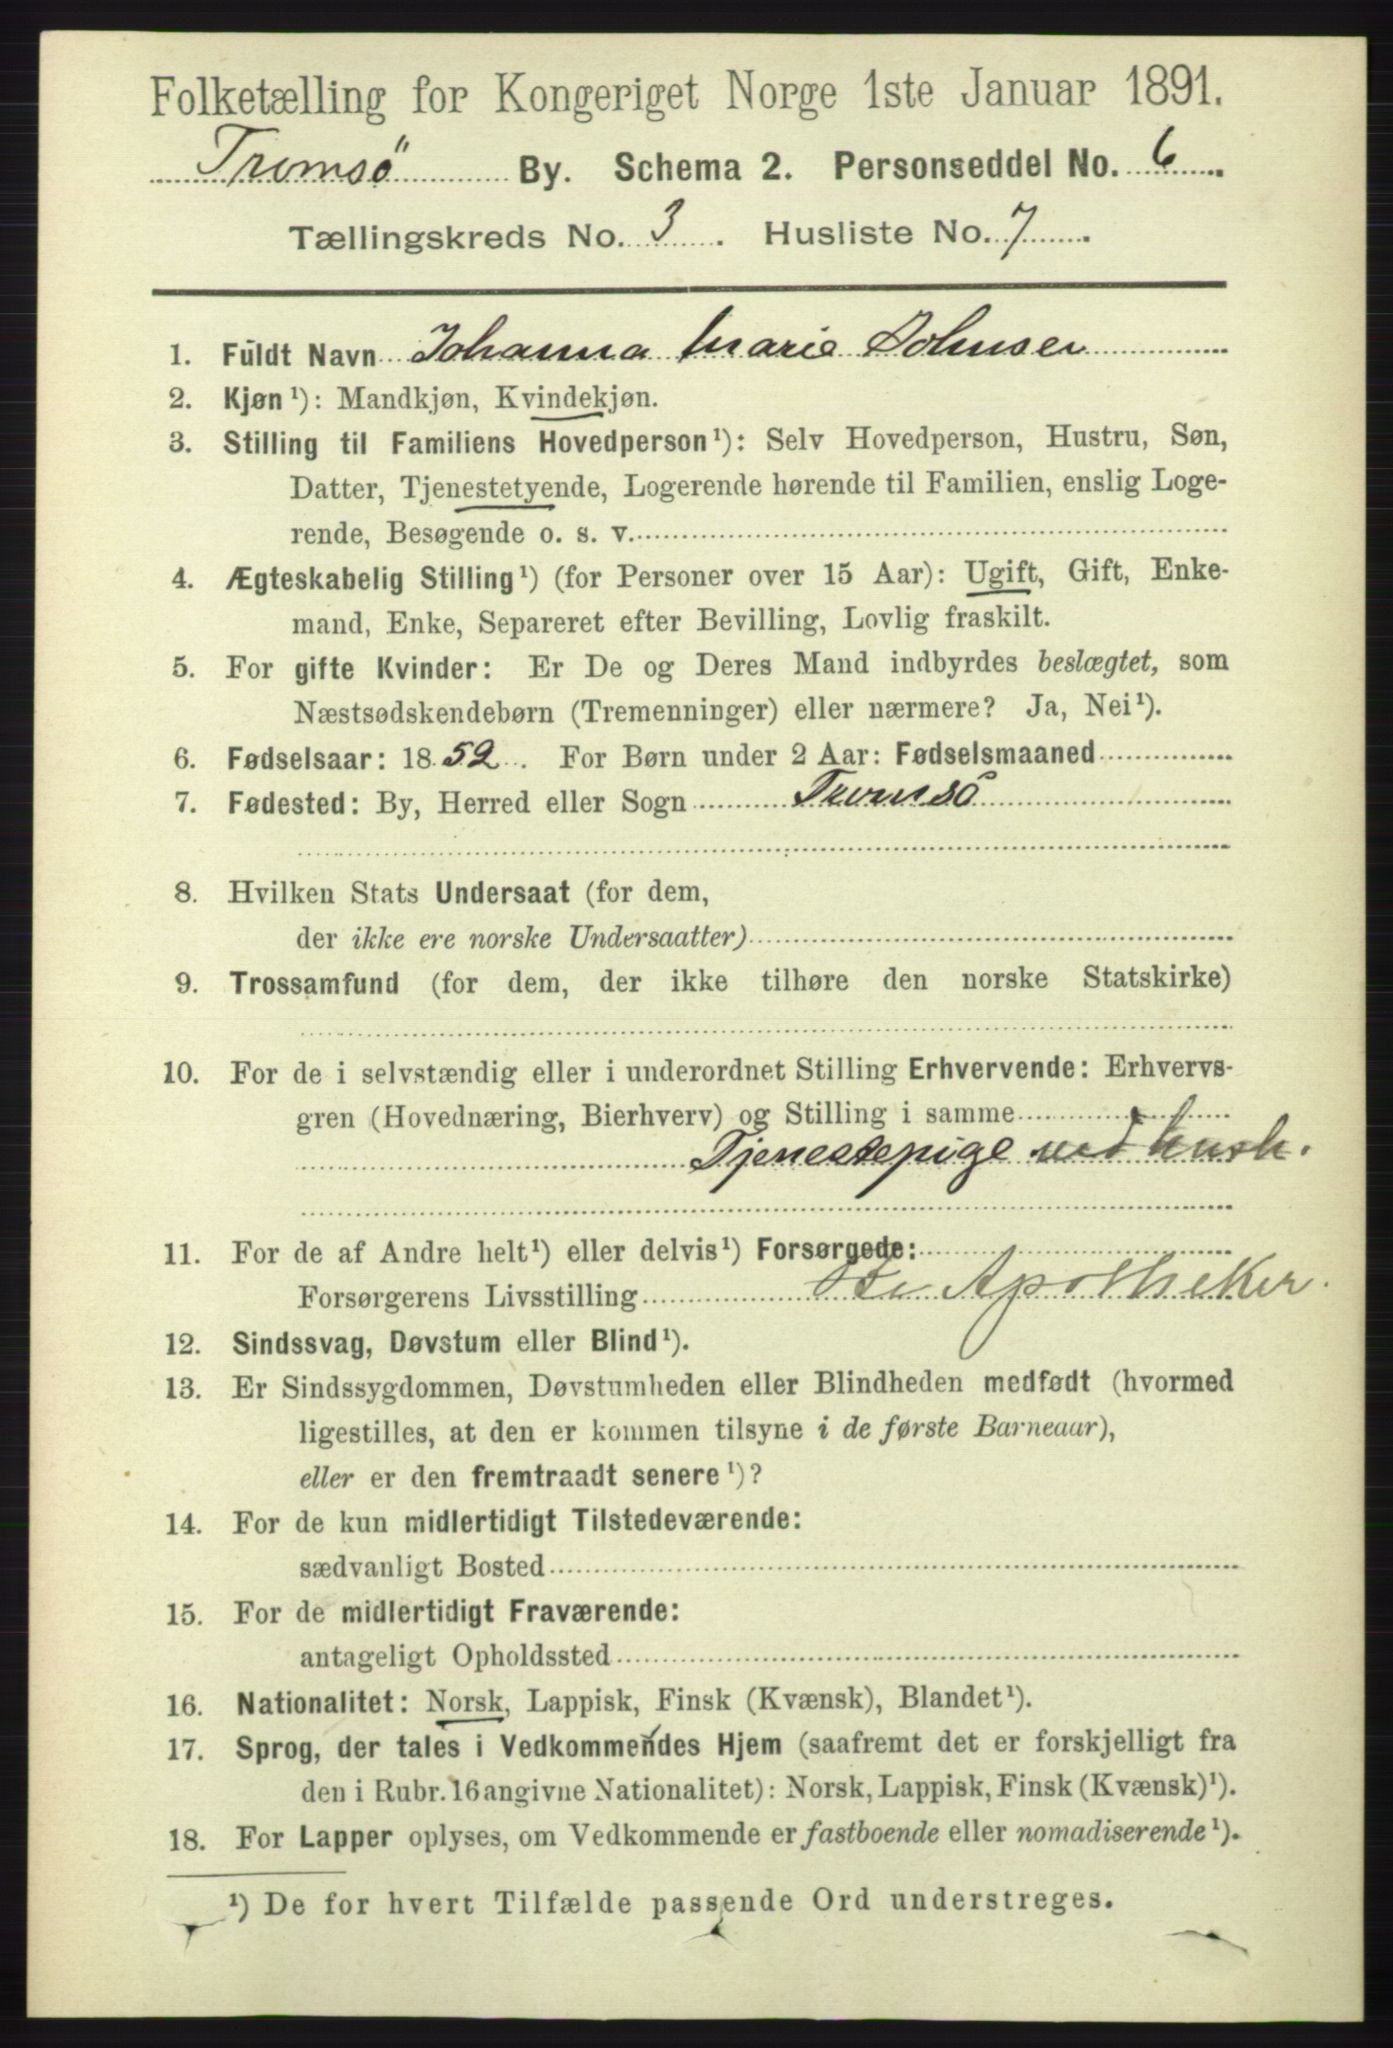 Folketælling for Kongeriget Norge 1ste Januar 1891.
Tromsö By. Schema 2. Personseddel No. 6
Tællingskreds No. 3. Husliste No. 7.
1. Fuldt Navn Johanna Marie Johnsen
2. Kjøn¹): Mandkjøn, Kvindekjøn.
3. Stilling til Familiens Hovedperson¹): Selv Hovedperson, Hustru, Søn,
Datter, Tjenestetyende, Logerende hørende til Familien, enslig Loge-
rende, Besøgende o. s. v.
4. Ægteskabelig Stilling¹) (for Personer over 15 Aar): Ugift, Gift, Enke-
mand, Enke, Separeret efter Bevilling, Lovlig fraskilt.
5. For gifte Kvinder: Er De og Deres Mand indbyrdes beslægtet, som
Næstsødskendebørn (Tremenninger) eller nærmere? Ja, Nei¹).
6. Fødselsaar: 1852. For Børn under 2 Aar: Fødselsmaaned
7. Fødested: By, Herred eller Sogn Tromsö
8. Hvilken Stats Undersaat (for dem,
der ikke ere norske Undersaatter)
9. Trossamfund (for dem, der ikke tilhøre den norske Statskirke)
10. For de i selvstændig eller i underordnet Stilling Erhvervende: Erhvervs-
gren (Hovednæring, Bierhverv) og Stilling i samme
Tjenestepige ved hush.
11. For de af Andre helt¹) eller delvis¹) Forsørgede:
Forsørgerens Livsstilling Apotheker.
12. Sindssvag, Døvstum eller Blind¹).
13. Er Sindssygdommen, Døvstumheden eller Blindheden medfødt (hvormed
ligestilles, at den er kommen tilsyne i de første Barneaar),
eller er den fremtraadt senere¹)?
14. For de kun midlertidigt Tilstedeværende:
sædvanligt Bosted
15. For de midlertidigt Fraværende:
antageligt Opholdssted
16. Nationalitet: Norsk, Lappisk, Finsk (Kvænsk), Blandet¹).
17. Sprog, der tales i Vedkommendes Hjem (saafremt det er forskjelligt fra
den i Rubr. 16 angivne Nationalitet): Norsk, Lappisk, Finsk (Kvænsk)¹).
18. For Lapper oplyses, om Vedkommende er fastboende eller nomadiserende¹).
¹) De for hvert Tilfælde passende Ord understreges.